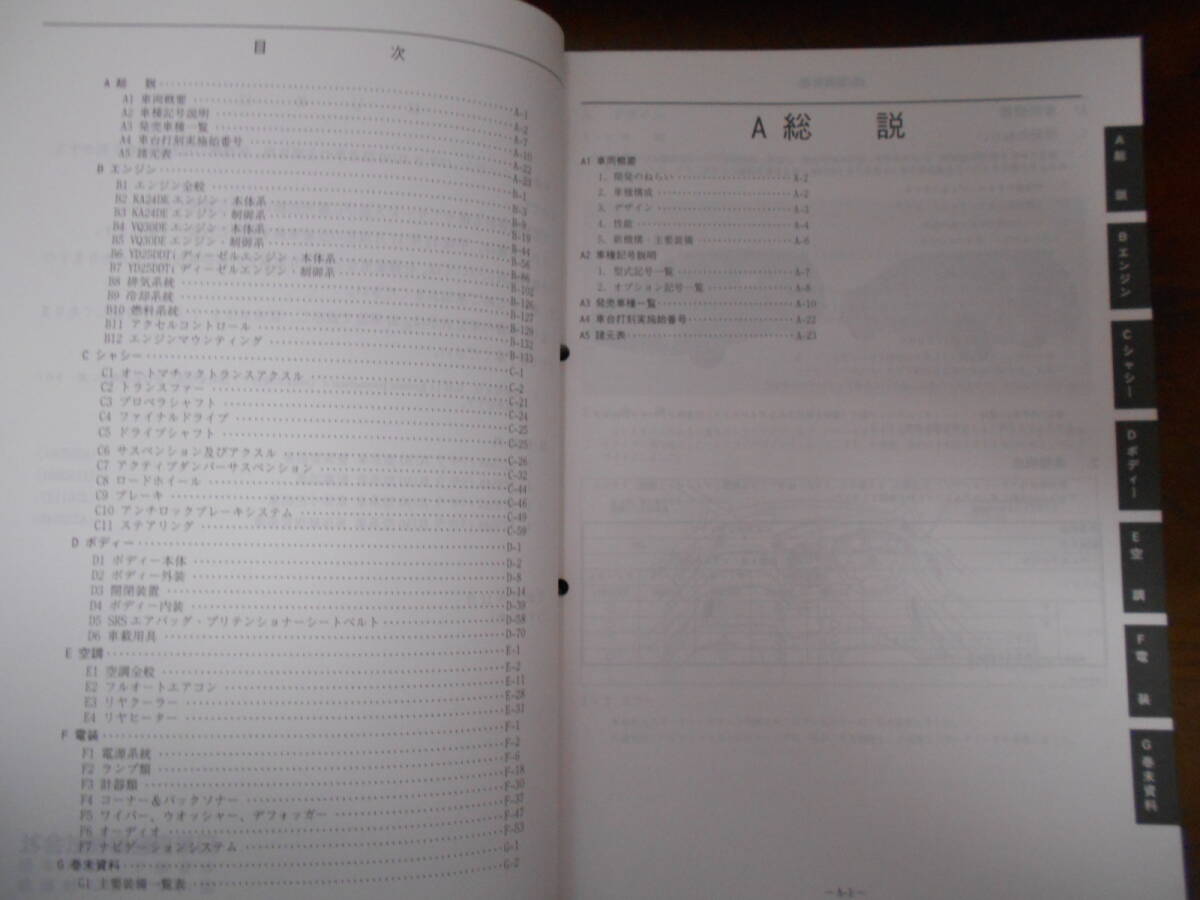 目 次
A 総 説 A-1
A1 車両概要 A-2
A2 車種記号説明 A-7
A3 発売車種一覧 A-10
A4 車台打刻実施始番号 A-22
A5 諸元表 A-23
B エンジン B-1
B1 エンジン全般 B-3
B2 KA24DEエンジン・本体系 B-9
B3 KA24DEエンジン・制御系 B-19
B4 VQ30DEエンジン・本体系 B-44
B5 VQ30DEエンジン・制御系 B-56
B6 YD25DDTiディーゼルエンジン・本体系 B-86
B7 YD25DDTiディーゼルエンジン・制御系 B-102
B8 排気系統 B-126
B9 冷却系統 B-127
B10 燃料系統 B-129
B11 アクセルコントロール B-132
B12 エンジンマウンティング B-133
C シャシー C-1
C1 オートマチックトランスアクスル C-2
C2 トランスファー C-21
C3 プロペラシャフト C-24
C4 ファイナルドライブ C-25
C5 ドライブシャフト C-25
C6 サスペンション及びアクスル C-26
C7 アクティブダンパーサスペンション C-32
C8 ロードホイール C-44
C9 ブレーキ C-46
C10 アンチロックブレーキシステム C-49
C11 ステアリング C-59
D ボディー D-1
D1 ボディー本体 D-2
D2 ボディー外装 D-8
D3 開閉装置 D-14
D4 ボディー内装 D-39
D5 SRSエアバッグ・プリテンショナーシートベルト D-58
D6 車載用具 D-70
E 空調 E-1
E1 空調全般 E-2
E2 フルオートエアコン E-11
E3 リヤクーラー E-28
E4 リヤヒーター E-31
F 電装 F-1
F1 電源系統 F-2
F2 ランプ類 F-6
F3 計器類 F-18
F4 コーナー&バックソナー F-30
F5 ワイパー、ウオッシャー、デフォッガー F-37
F6 オーディオ F-47
F7 ナビゲーションシステム F-53
G 巻末資料 G-1
G1 主要装備一覧表 G-2
A 総 説
A1 車両概要
1. 開発のねらい A-2
2. 車種構成 A-2
3. デザイン A-3
4. 性能 A-4
5. 新機構・主要装備 A-6
A2 車種記号説明
1. 型式記号一覧 A-7
2. オプション記号一覧 A-8
A3 発売車種一覧 A-10
A4 車台打刻実施始番号 A-22
A5 諸元表 A-23
—A-1—
A 総 説
B エンジン
C シャシー
D ボディー
E 空 調
F 電 装
G 巻末資料